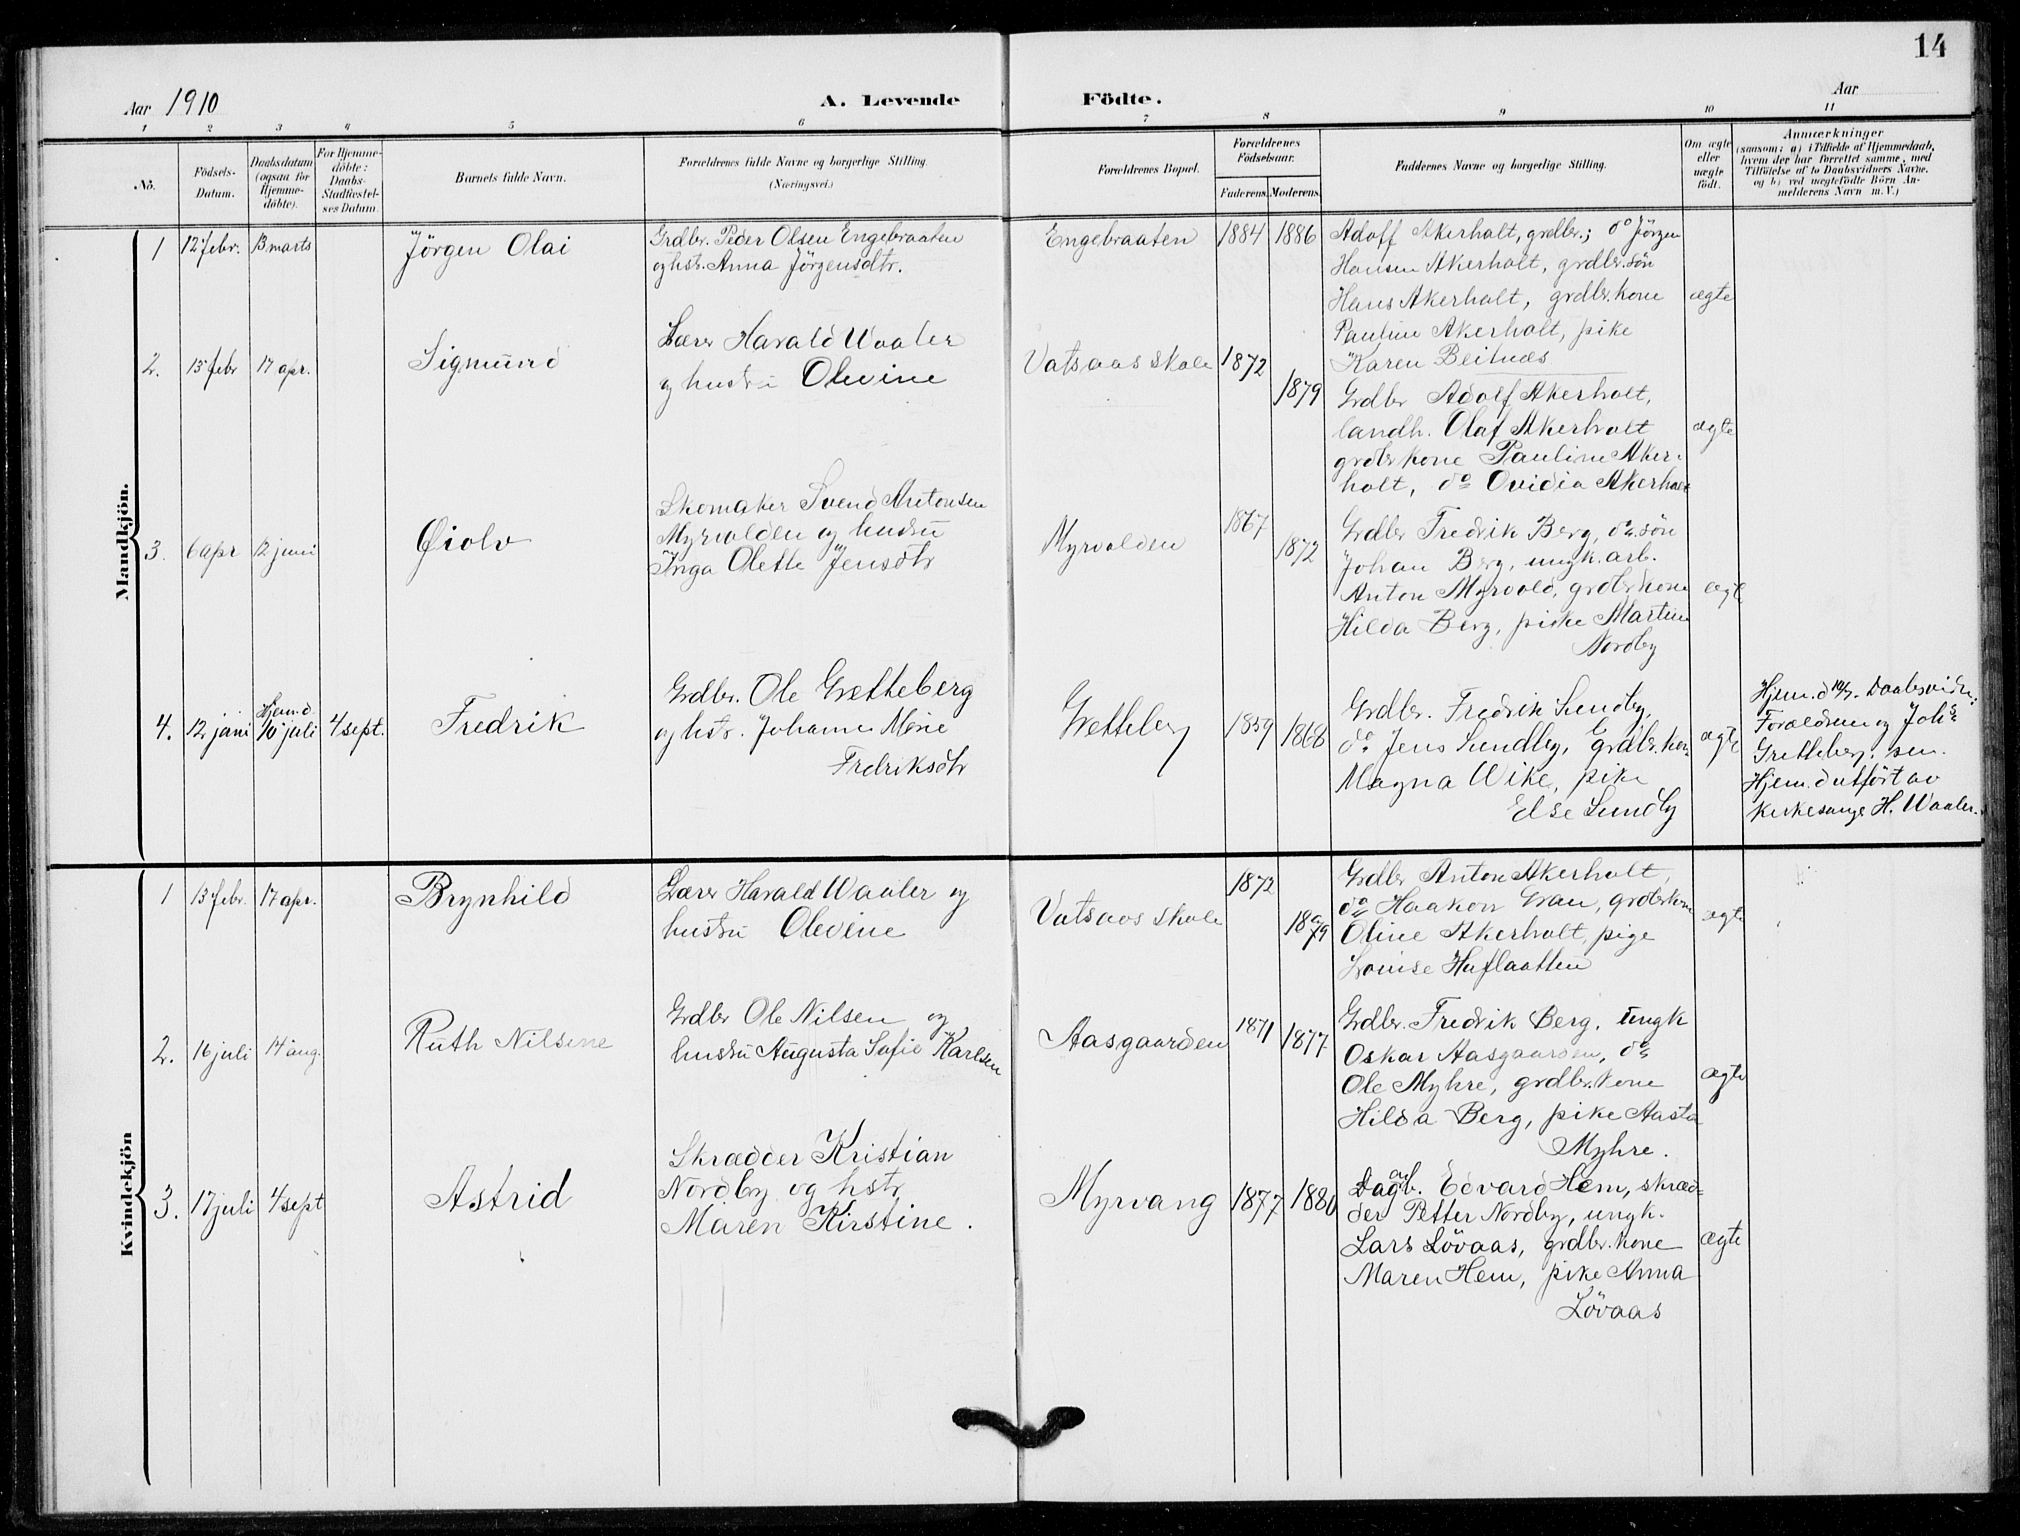 14
Aar 1910
A. Levende Födte.
Aar
1 2 3 4 5 6 7 8 9 10 11
No.
Födsels-
Datum.
Daabsdatum
(ogsaa for
Hjemme-
döbte).
For Hjemme-
döbte:
Daabs-
Stadfæstel-
ses Datum.
Barnets fulde Navn.
Forældrenes fulde Navne og borgerlige Stilling.
(Næringsvei.)
Forældrenes Bopæl.
Forældrenes
Födselsaar.
Faderens. Moderens.
Faddernes Navne og borgerlige Stilling.
Om ægte
eller
uægte
født.
Anmærkninger
(saasom: a) i Tilfælde af Hjemmedaab,
hvem der har forrettet samme, med
Tilföielse af to Daabsvidners Navne,
og b) ved uægtefödte Börn An-
melderens Navn m. V.)
Mandkjön.
1 12 febr. 13 marts
Jörgen Olai
Grdbr. Peder Olsen Engebraaten
og hstr. Anna Jörgensdtr.
Engebraaten
1884 1886
Adolf Akerholt, grdbr.; do Jörgen
Hansen Akerholt, grdbr. sön
Hans Akerholt, grdbr. kone
Pauline Akerholt, pike
Karen Beitnæs
ægte
2. 15 febr 17 apr.
Sigmund
Lærer Harald Waaler
og hustru Olevine
Vatsaas skole
1872
1879
Grdbr Adolf Akerholt,
landh. Olaf Akerholt
grdbr kone Pauline Aker-
holt, do Ovidia Akerholt
ægte
3. 6 apr 12 juni
Øiolv
Skomaker Svend Antonsen
Myrvolden og hustru
Inga Olette Jensdtr
Myrvolden
1867
1872
Grdbr Fredrik Berg, do sön
Johan Berg, ungk. arb.
Anton Myrvold, grdbr kone
Hilda Berg, pike Martine
Nordby
ægte
4. 12 juni
Hjem.d.
10 juli
4 sept.
Fredrik
Grdbr. Ole Gretteberg
og hstr. Johanne Marie
Fredriksdtr
Gretteberg
1859 1868
Grdbr. Fredrik Sundby,
do Jens Sundby, grdbr. kone
Magna Wike, pike
Else Sundby
ægte
Hjem. d 10/7. Daabsvidn:
Forældrene og Johs
Gretteberg, sen.
Hjem.d utfört av
kirkesanger H. Waaler.
Kvindekjön
1 15 febr. 17 apr.
Brynhild
Lærer Harald Waaler og
hustru Olevine
Vatsaas skole
1872
1879
Grdbr Anton Akerholt,
do Haakon Grau, grdbr kone
Oline Akerholt, pige
Louise Huflaatten
ægte
2. 16 juli 14 aug.
Ruth Nilsine
Grdbr Ole Nilsen og
hustru Augusta Sofie Karlsen
Aasgaarden
1871 1877
Grdbr. Fredrik Berg. ungk
Oskar Aasgaarden, do
Ole Myhre, grdbr. kone
Hilda Berg, pike Aasta
Myhre.
ægte
3. 17 juli 4 sept
Astrid
Skrædder Kristian
Nordby og hstr
Maren Kirstine.
Myrvang
1877 1880
Dagarb. Edvard Hem, skræd-
der Petter Nordby, ungk.
Lars Lövaas, grdbr. kone
Maren Hem, pike Anna
Lövaas
ægte